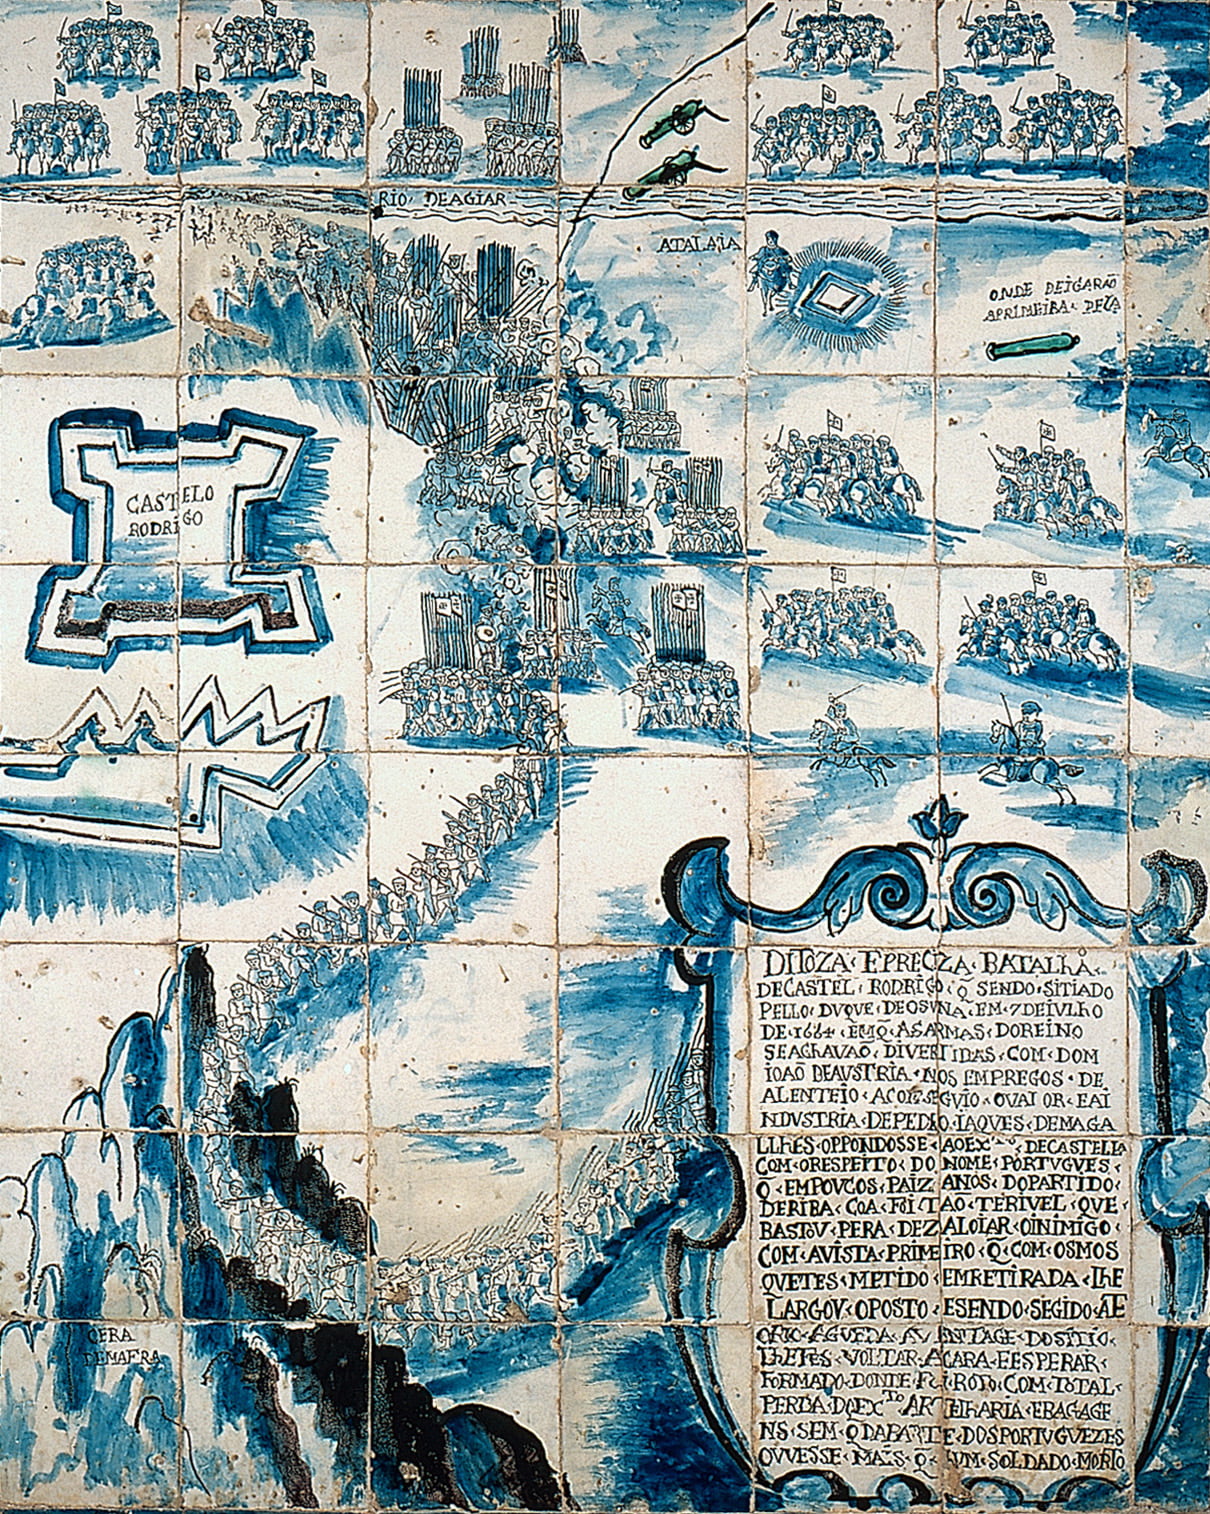 RIO DEAGIAR
ATALAIA
ONDE DEIGARAÕ
APRIMEIRA PEÇA
CASTELO
RODRIGO
DITOZA E PRECIZA BATALHA
DECASTEL RODRIGO Q̃ SENDO SITIADO
PELLO DVQVE DEOSVNA EM 7 DEIVLHO
DE 1664 EMQ̃ ASARMAS DOREINO
SEAGHAVAÕ DIVERTIDAS COM DOM
IOAÕ DEAVSTRIA NOS EMPREGOS DE
ALENTEIO ACOMSEGVIO OVAIOR EAI
NDVSTRIA DEPEDRO IAQVES DEMAGA
LLHES OPPONDOSSE AOEX.TO DECASTELLA
COM ORESPEITO DO NOME PORTVGVES
Q̃ EMPOVCOS PAIZANOS DOPARTIDO
DERIBA COA FOI TAÕ TERIVEL QVE
BASTOV PERA DEZALOIAR OINIMIGO
COM AVISTA PRIMEIRO Q̃ COM OSMOS
QVETES METIDO EMRETIRADA LHE
LARGOV OPOSTO ESENDO SEGIDO ATE
AGVEDA AV ENTAGE DOSITIO
LHEFES VOLTAR ACARA EESPERAR
FORMADO DONDE FOI ROTO COM TOTAL
PERDA DOEX.TO ARTELHARIA EBAGAGE
NS SEM Q̃ DAPARTE DOSPORTVGVEZES
OVVESSE MAIS Q̃ HVM SOLDADO MORTO
CERA
DEMAFRA